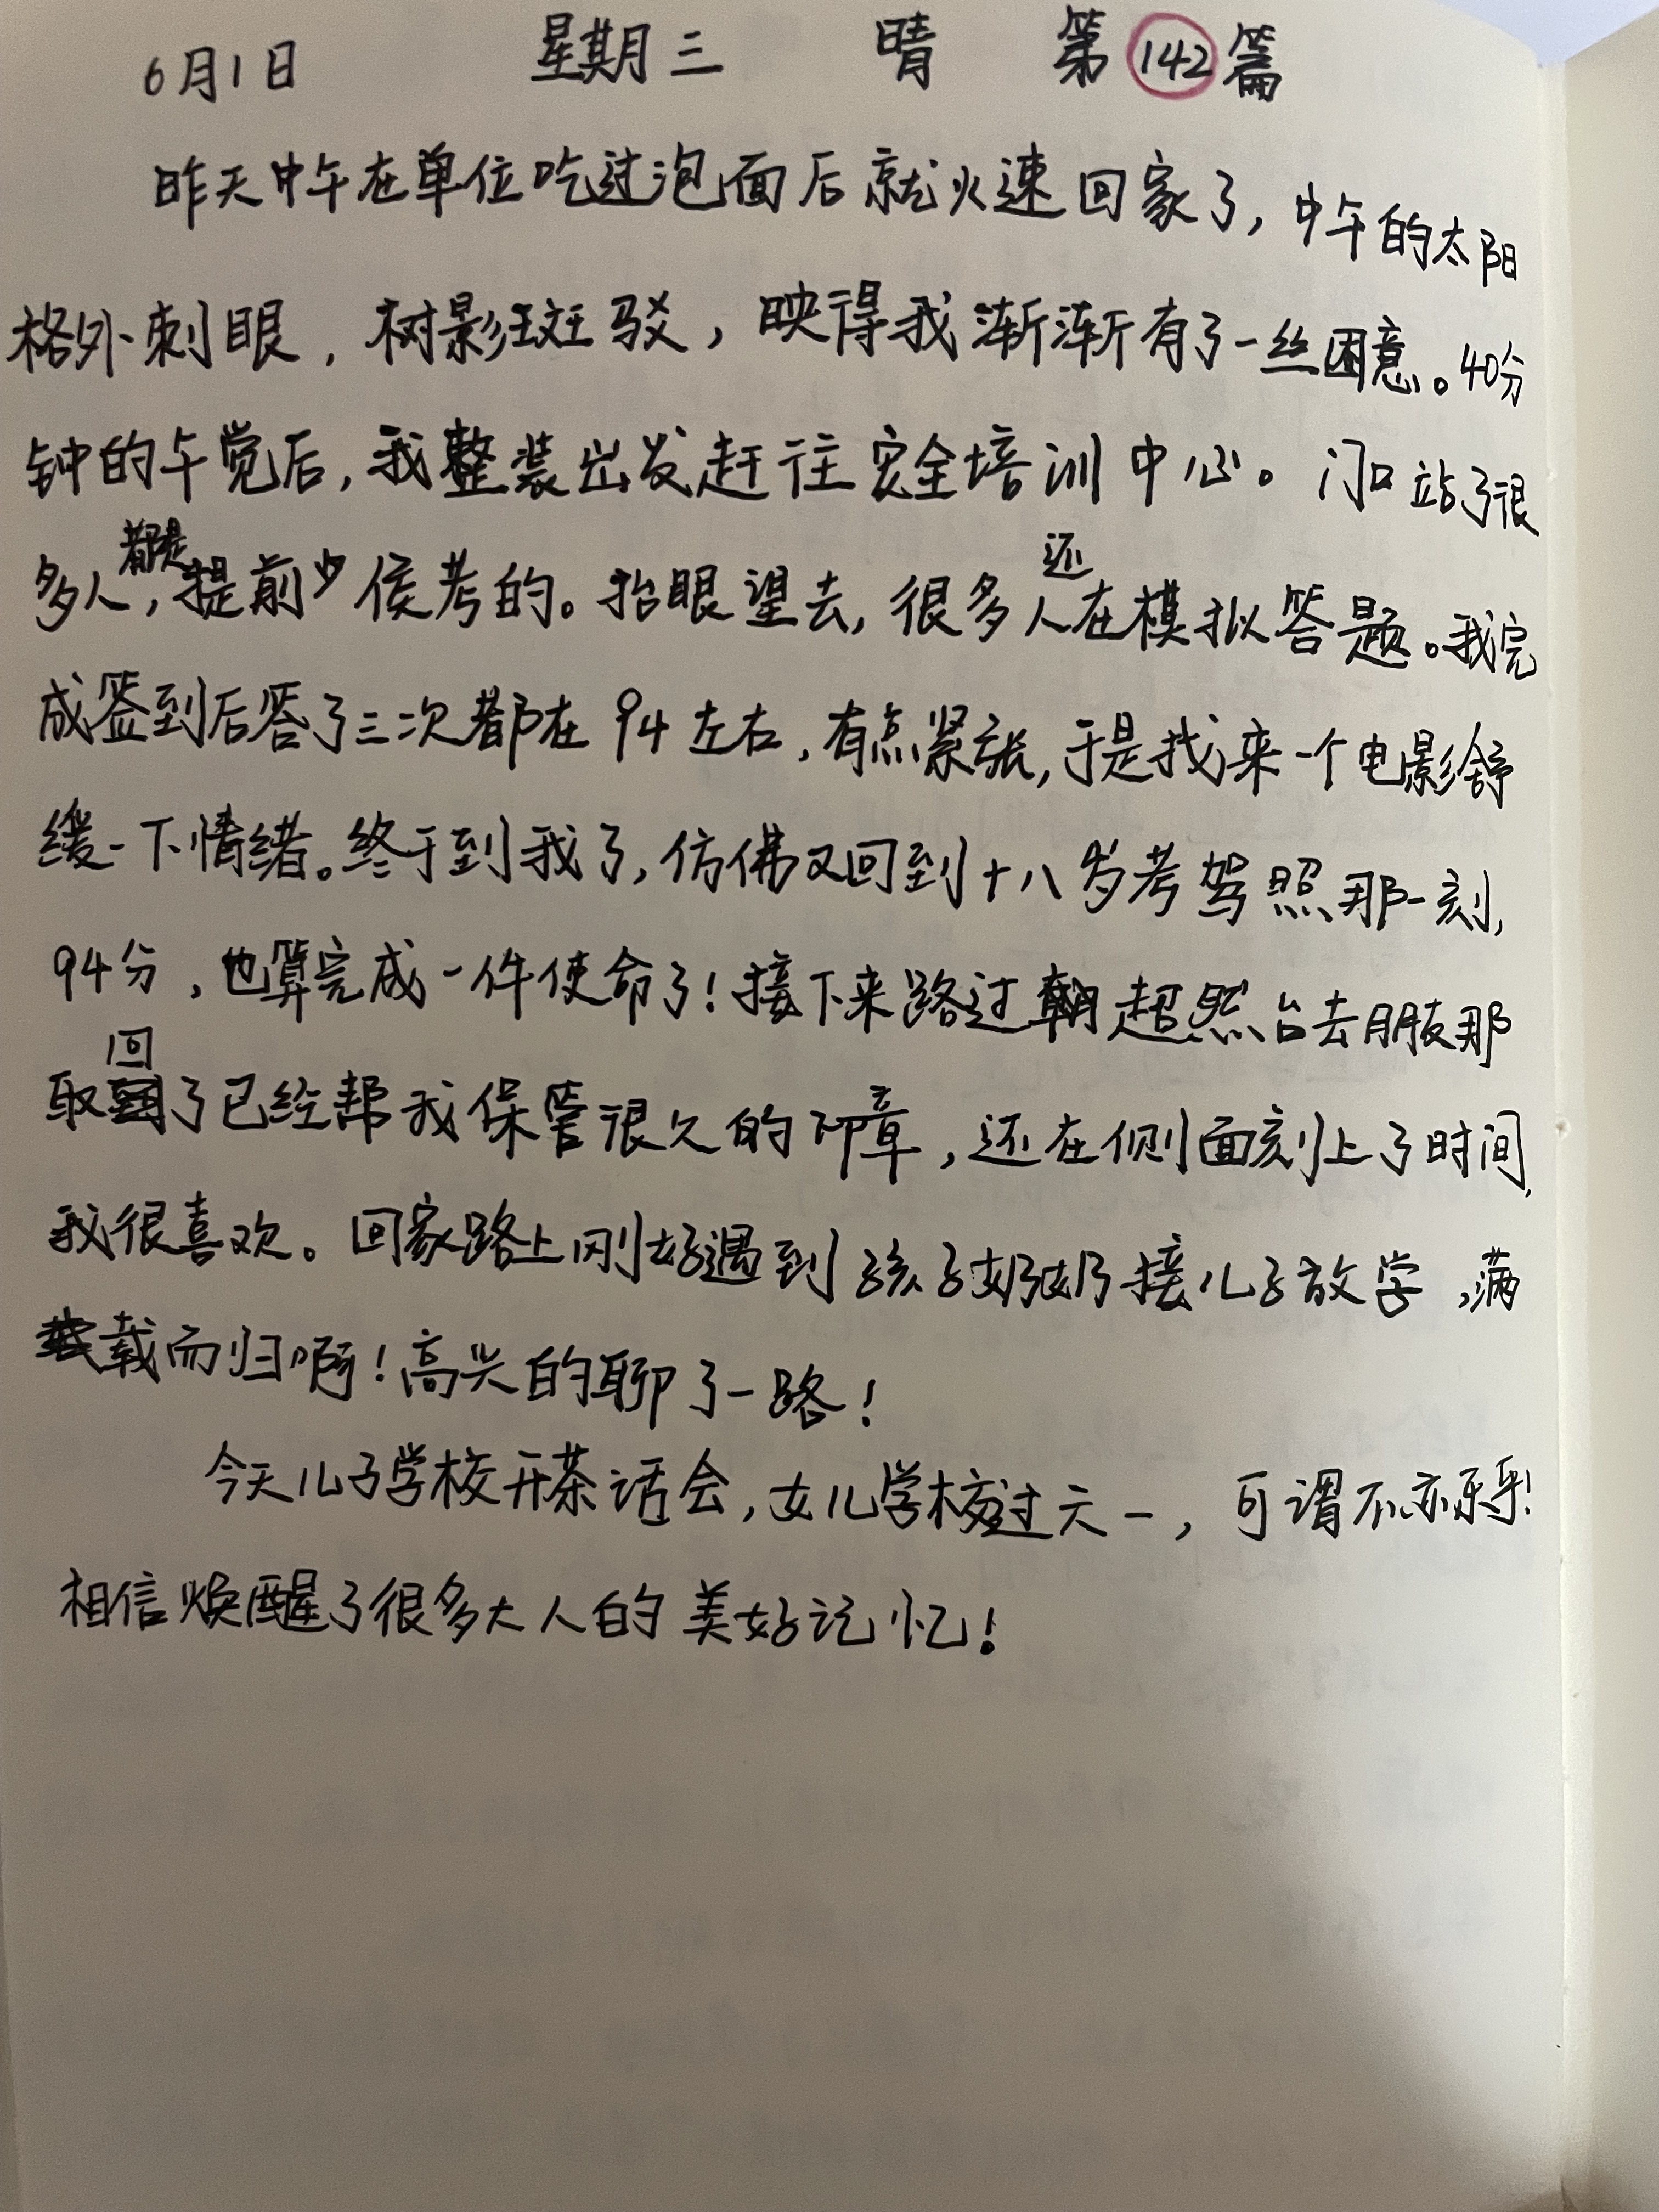 6月1日 星期三 晴 第142篇
昨天中午在单位吃过泡面后就火速回家了，中午的太阳
格外刺眼，树影斑驳，映得我渐渐有了一丝困意。40分
钟的午觉后，我整装出发赶往安全培训中心。门口站了很
多人，都是提前侯考的。抬眼望去，很多人还在模拟答题。我完
成签到后答了三次都在94左右，有点紧张，于是找来一个电影舒
缓一下情绪。终于到我了，仿佛又回到十八岁考驾照那一刻，
94分，也算完成一件使命了！接下来路过超然台去朋友那
取回了已经帮我保管很久的印章，还在侧面刻上了时间，
我很喜欢。回家路上刚好遇到孩子奶奶接儿子放学，满
载而归啊！高兴的聊了一路！
今天儿子学校开茶话会，女儿学校过六一，可谓不亦乐乎！
相信焕醒了很多大人的美好记忆！